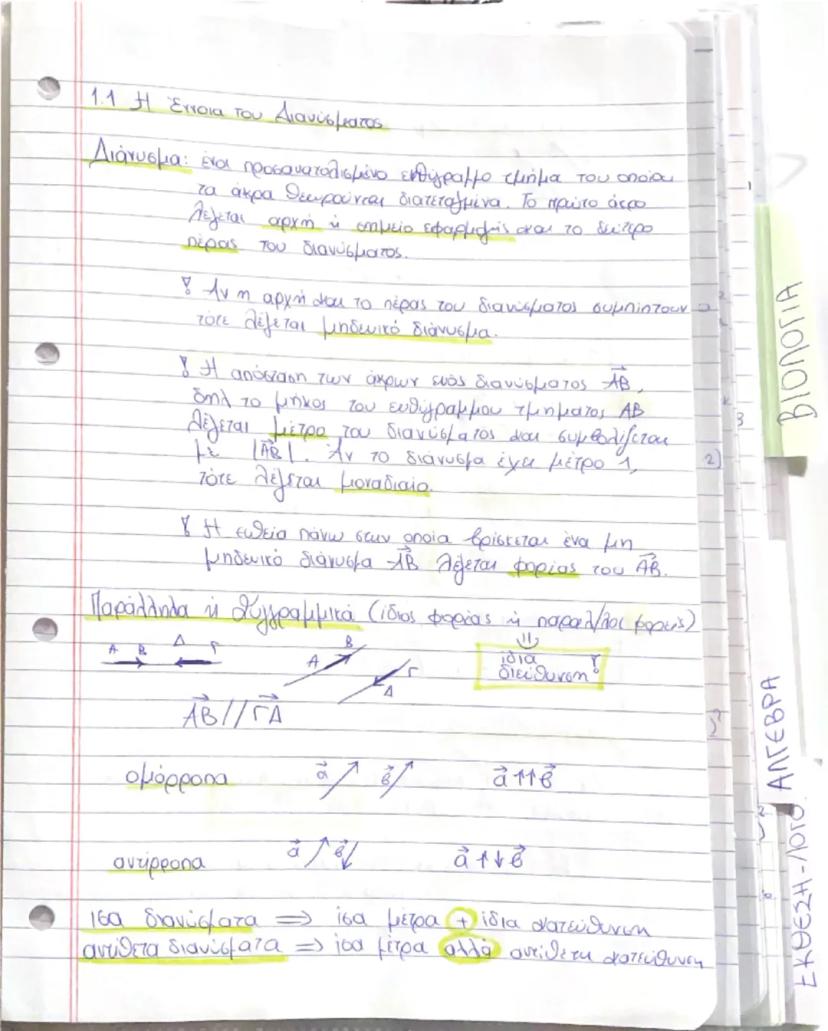 1.1 Η Έννοια του Διανύσματος
Διάνυσμα: ένα προσανατολισμένο ευθύγραμμο τμήμα του οποίου
τα άκρα θεωρούνται διατεταγμένα. Το πρώτο άκρο
λέγεται αρχή ή σημείο εφαρμογής και το δεύτερο
πέρας του διανύσματος.
! Αν η αρχή και το πέρας του διανύσματος συμπίπτουν
τότε λέγεται μηδενικό διάνυσμα.
! Η απόσταση των άκρων ενός διανύσματος AB⃗,
δηλ το μήκος του ευθύγραμμου τμήματος AB
λέγεται μέτρο του διανύσματος και συμβολίζεται
με |AB⃗|. Αν το διάνυσμα έχει μέτρο 1,
τότε λέγεται μοναδιαίο.
! Η ευθεία πάνω στην οποία βρίσκεται ένα μη
μηδενικό διάνυσμα AB⃗ λέγεται φορέας του AB⃗.
Παράλληλα ή συγγραμμικά (ίδιος φορέας ή παράλ/λοι φορείς)
A B Δ Γ A B Γ Δ
ίδια
διεύθυνση !
AB⃗ // ΓΔ⃗
ομόρροπα a⃗ β⃗ a⃗ ↑↑ β⃗
αντίρροπα a⃗ β⃗ a⃗ ↑↓ β⃗
ίσα διανύσματα ⇒ ίσα μέτρα + ίδια κατεύθυνση
αντίθετα διανύσματα ⇒ ίσα μέτρα αλλά αντίθετη κατεύθυνση
ΒΙΟΛΟΓΙΑ
ΑΛΓΕΒΡΑ
ΕΚΘΕΣΗ-ΛΟΓΟ.